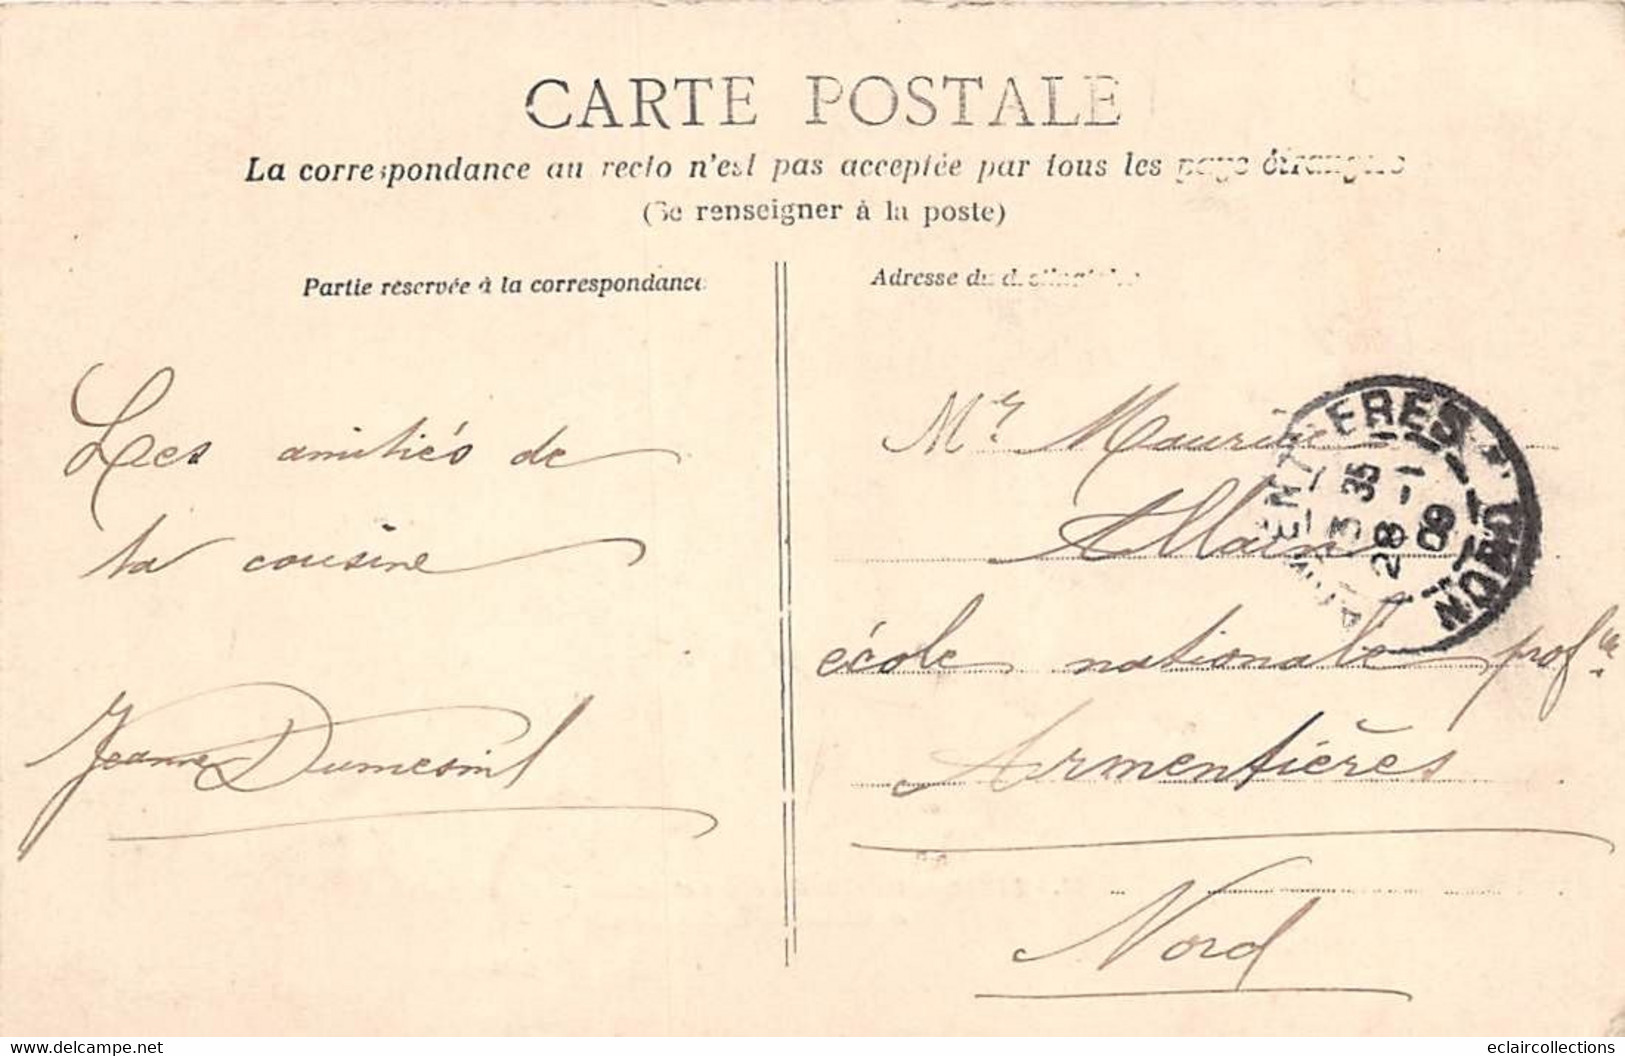 CARTE POSTALE
La correspondance au recto n'est pas acceptée par tous les pays étrangers
(Se renseigner à la poste)
Partie réservée à la correspondance
Adresse du destinataire
Les amitiés de
ta cousine
Jeanne Dumesnil
Mr Maurice
Allain
école nationale profle
Armentières
Nord
ARMENTIÈRES
3 35
28 -1
09
NORD
Delcampe.net
eclaircollections